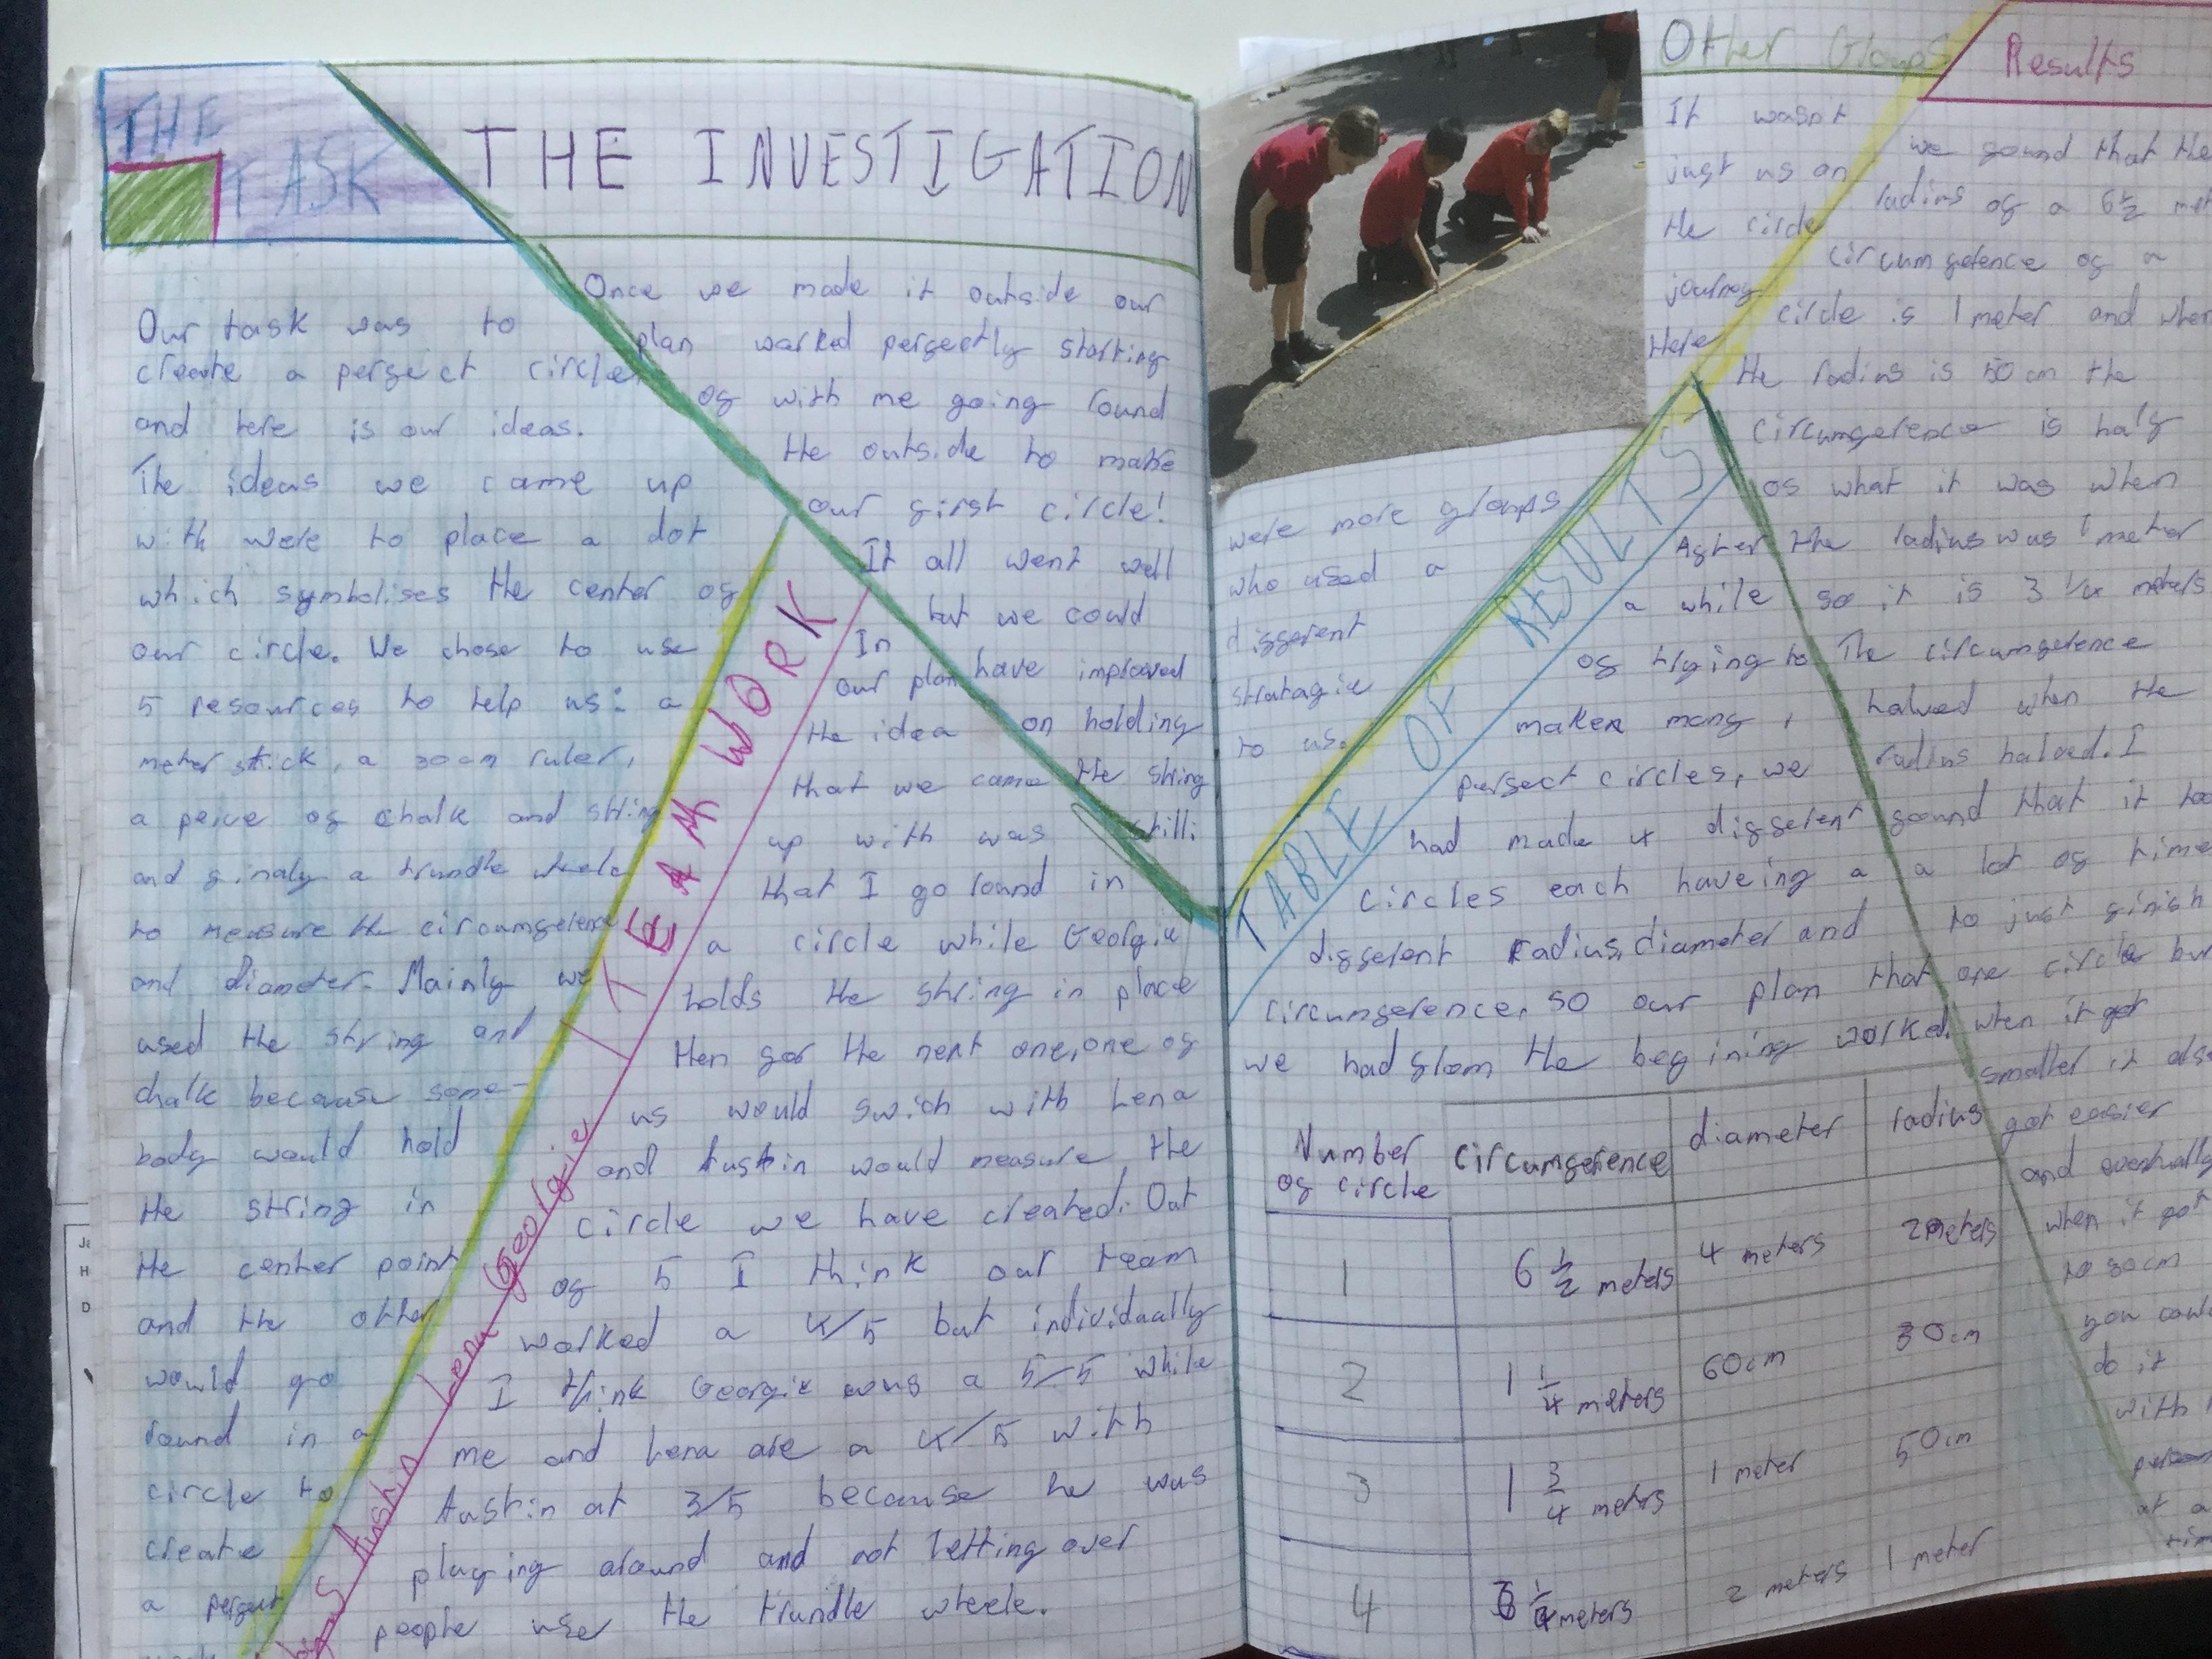 THE
TASK
Our task was to
create a persect circle
and here is our ideas.
The ideas we came up
with were to place a dot
which symbolises the center of
our circle. We chose to use
5 resources to help us: a
meter stick, a 30cm ruler,
a peice of chalk and string
and finaly a trundle wheele
to measure the circumference
and diameter. Mainly we
used the string and
chalk because some-
body would hold
the string in
the center point
and the other
would go
round in a
circle to
create
a perfect
THE INVESTIGATION
Once we made it outside our
plan worked perfectly starting
of with me going round
the outside to make
our first circle!
It all went well
but we could
have improved
on holding
the string
still!
TEAM WORK
Austin Lena Georgie
In
our plan
the idea
that we came
up with was
that I go round in
a circle while Georgie
holds the string in place
then for the next one, one of
us would swich with Lena
and Austin would measure the
circle we have created. Out
of 5 I think our team
worked a 4/5 but individually
I think Georgie was a 5/5 while
me and Lena are a 4/5 with
Austin at 3/5 because he was
playing around and not letting over
people use the trundle wheele.
Other Groups
It wasn't
just us on
the circle
journey
Here
were more groups
who used a
different
stratagie
to us.
TABLE OF RESULTS
After
a while
of trying to
maken many
perfect circles, we
had made 4 different
circles each haveing a
different radius, diameter and
circumference, so our plan that
we had from the begining worked.
Number of circle circumference diameter radius
1 6 1/2 meters 4 meters 2 meters
2 1 1/4 meters 60cm 30cm
3 1 3/4 meters 1 meter 50cm
4 3 1/4 meters 2 meters 1 meter
Results
we found that the
radius of a 6 1/2
circumference of a
circle is 1 meter and when
the radius is 50cm the
circumference is half
of what it was when
the radius was 1 meter
so it is 3 1/4 meters
The circumference
halved when the
radius halved. I
found that it too
a lot of time
to just finish
one circle but
when it got
smaller it also
got easier
and eventually
when it got
to 30cm
you could
do it
with
at a